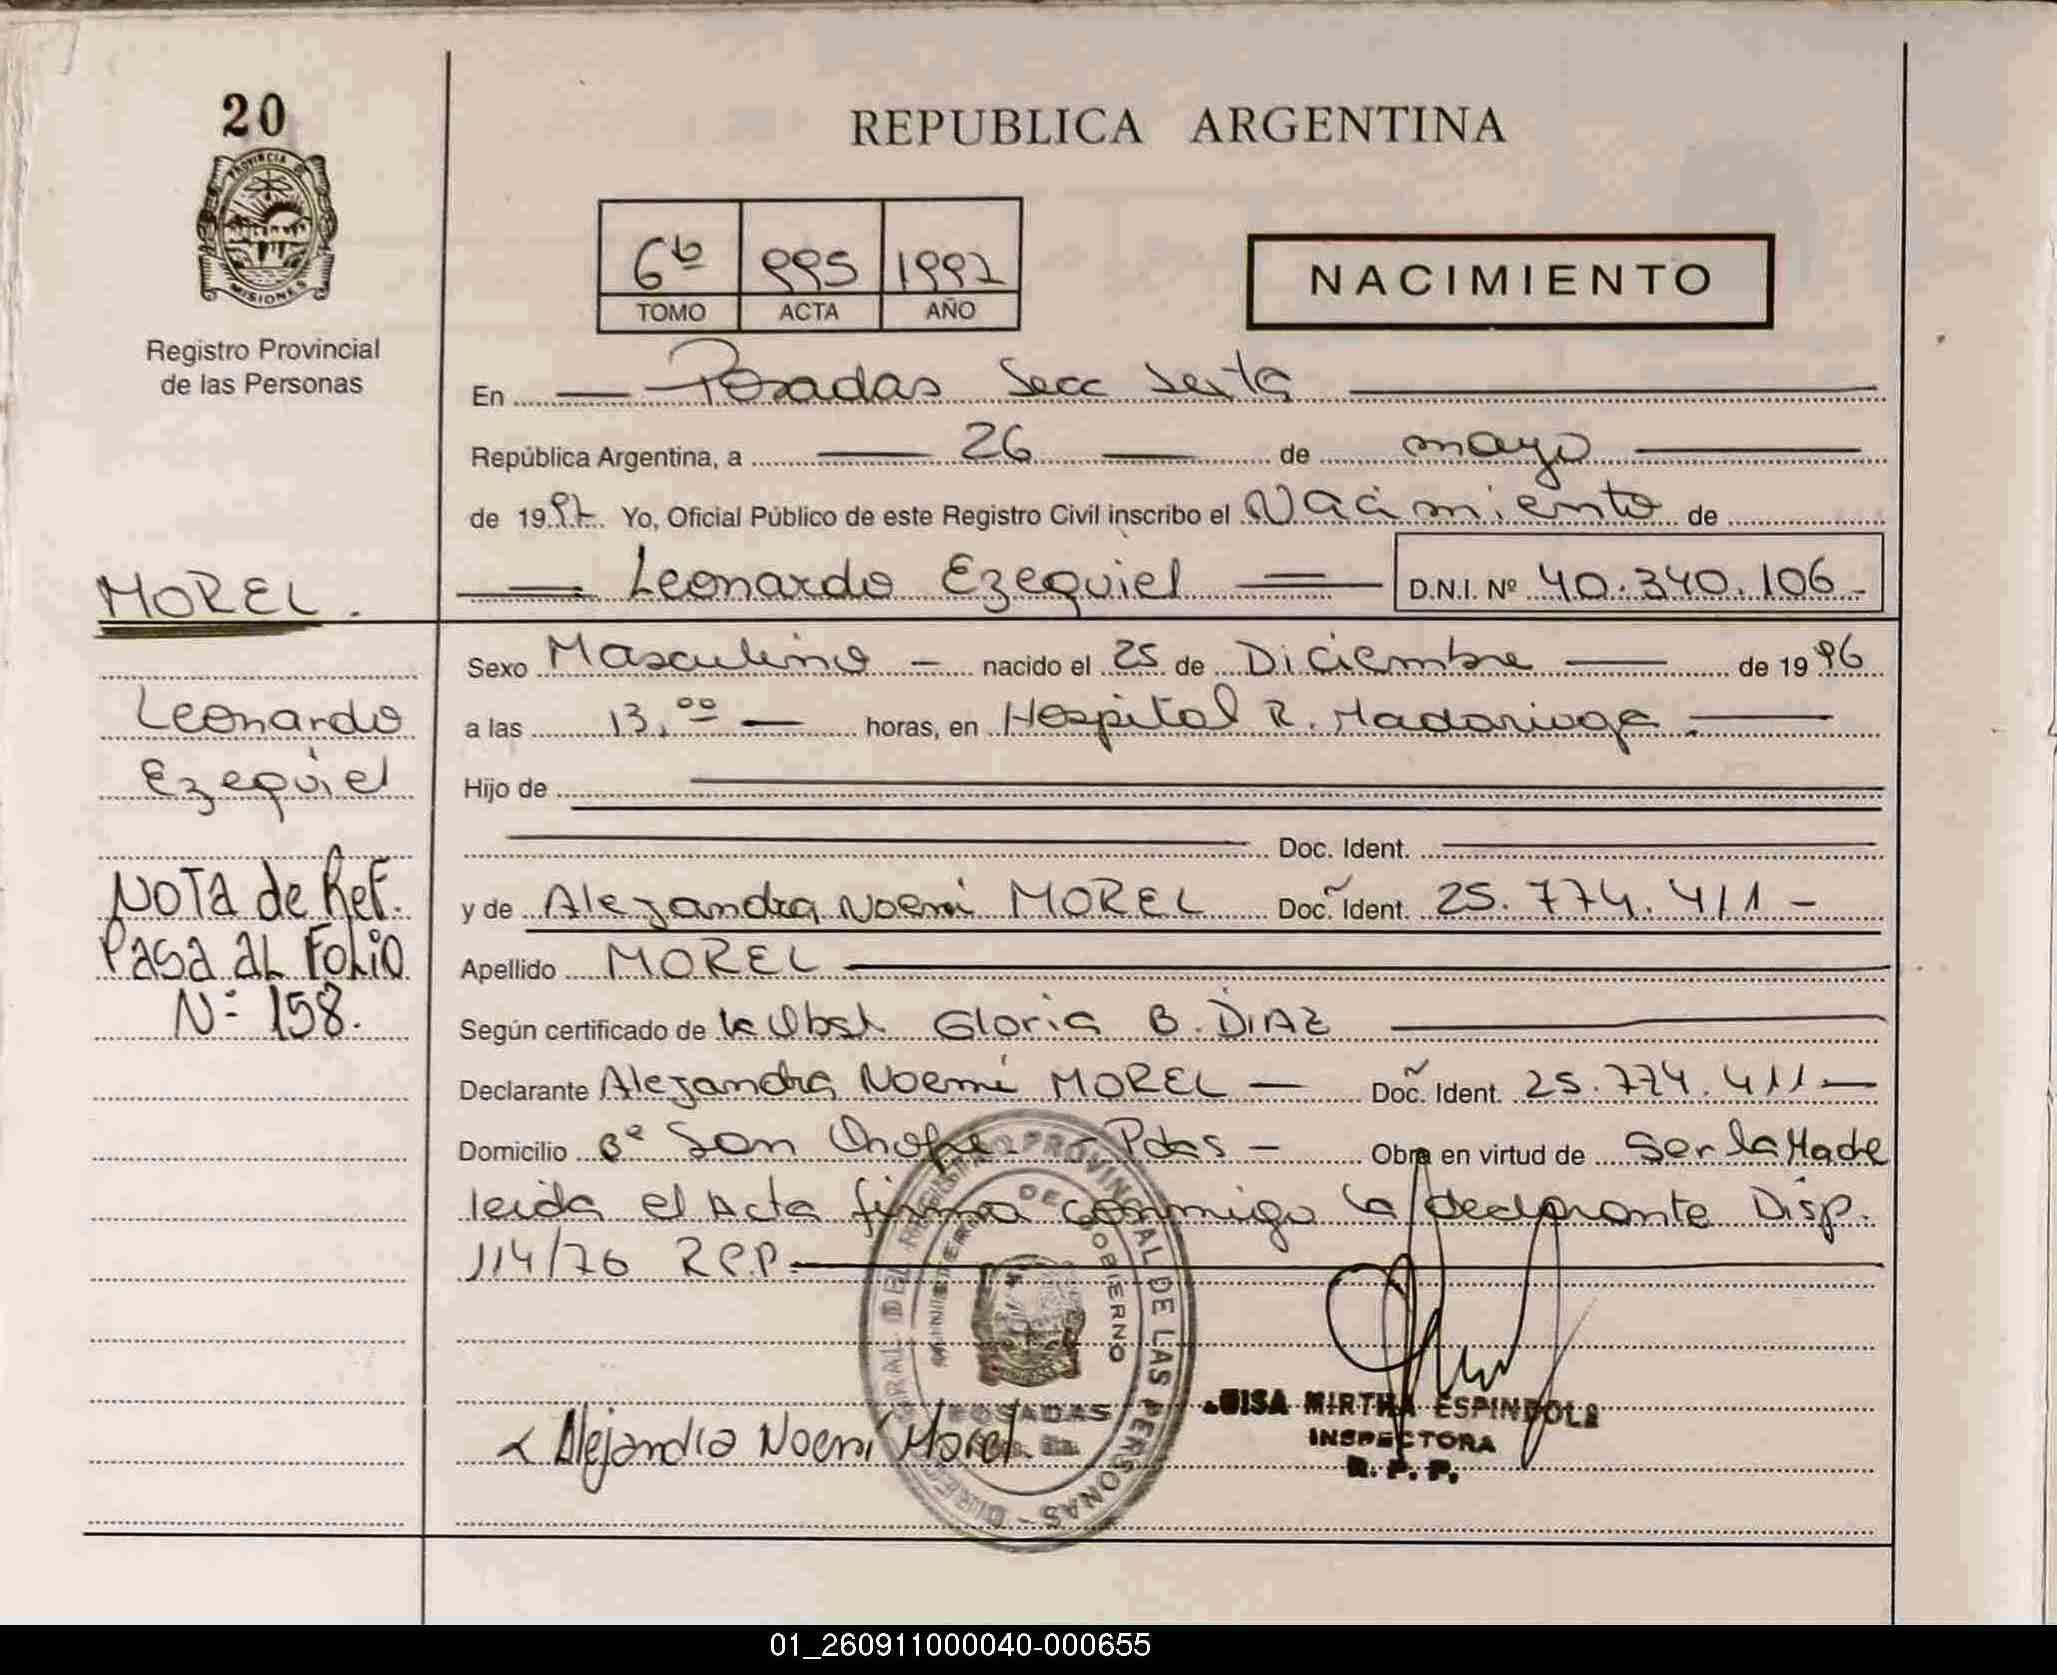 20
REPUBLICA ARGENTINA
PROVINCIA DE
MISIONES
Registro Provincial
de las Personas
6to 995 1997
TOMO ACTA AÑO
NACIMIENTO
En Posadas Secc Sexta
República Argentina, a 26 de mayo
de 1997. Yo, Oficial Público de este Registro Civil inscribo el Nacimiento de
Leonardo Ezequiel D.N.I. Nº 40.340.106-
MOREL.
Leonardo
Ezequiel
NOTA de Ref.
Pasa al Folio
N: 158.
Sexo Masculino - nacido el 25 de Diciembre de 1996
a las 13,00 horas, en Hospital R. Madariaga.
Hijo de
Doc. Ident.
y de Alejandra Noemi MOREL Doc. Ident. 25.774.411-
Apellido MOREL
Según certificado de la Obst. Gloria B. DIAZ
Declarante Alejandra Noemi MOREL - Doc. Ident. 25.774.411-
Domicilio Bº San - Pdas - Obra en virtud de Ser la Madre
leida el Acta firma conmigo la declarante Disp.
114/76 R.P.P.
DIRECCION GENERAL DEL REGISTRO PROVINCIAL DE LAS PERSONAS -
MINISTERIO DE GOBIERNO
POSADAS
Alejandra Noemi Morel
LUISA MIRTHA ESPINDOLA
INSPECTORA
R. P. P.
01_260911000040-000655